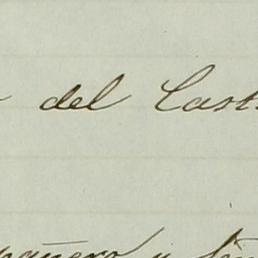 del Cast
pañero y